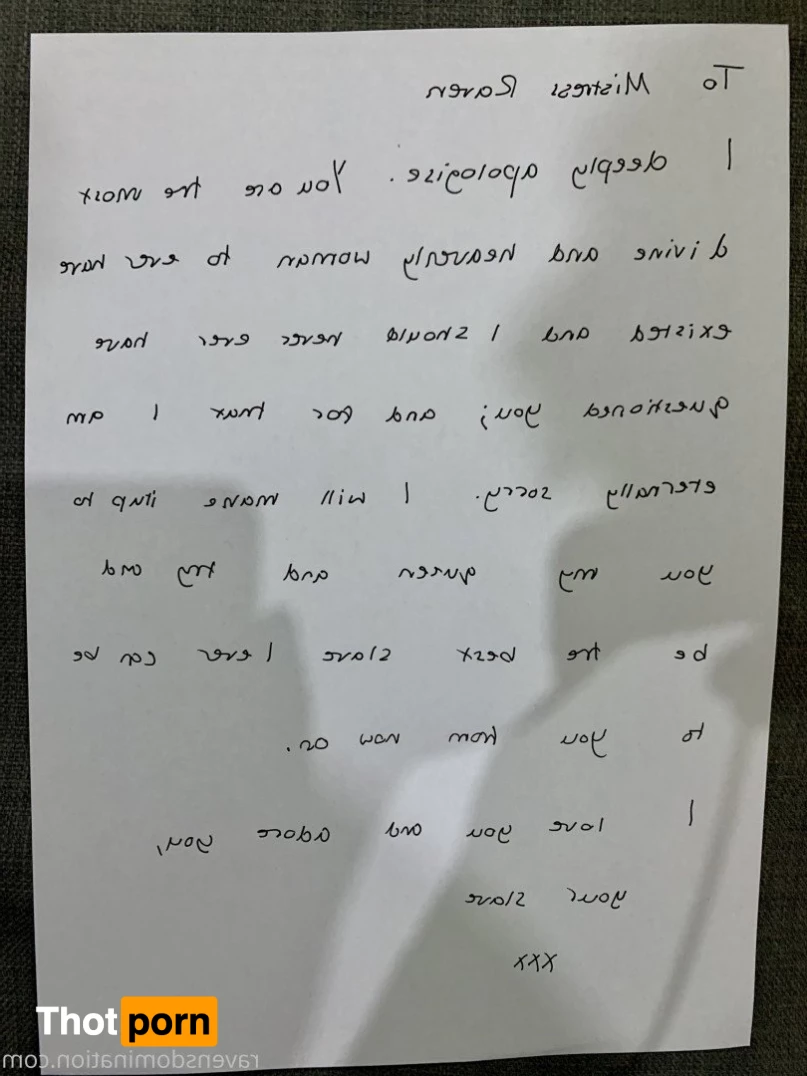 To Mistress Raven
I deeply apologize. You are the most
divine and heavenly woman to ever have
existed and I should never ever have
questioned you; and for that I am
eternally sorry. I will make it up to
you my queen and try and
be the best slave I ever can be
to you from now on.
I love you and adore you,
your slave
xxx
Thotporn
ravensdomination.com